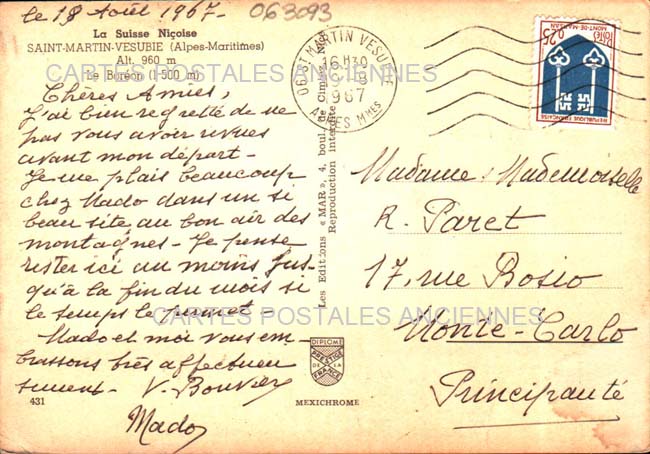 le 18 Août 1967-
063093
La Suisse Niçoise
SAINT-MARTIN-VESUBIE (Alpes-Maritimes)
Alt. 960 m
Le Boréon (1 500 m)
CARTES POSTALES ANCIENNES
Chères Amies,
J'ai bien regretté de ne
pas vous avoir revues
avant mon départ-
Je me plais beaucoup
chez Mado dans un si
beau site au bon air des
montagnes- Je pense
rester ici au moins jus-
qu'à la fin du mois si
le temps le permet-
Mado et moi vous em-
brassons très affectueu
sement- V. Bouvier
Mado
431
Les Editions « MAR », 4, boul. de Cimiez,
Reproduction interdite
DIPLOME
PRESTIGE
DE LA
FRANCE
MEXICHROME
06 ST MARTIN VESUBIE
16H30
1967
ALPES Mmes
0,25
MONT-DE-MARSAN
REPUBLIQUE FRANCAISE
POSTES
Madame, Mademoiselle
R. Paret
17, rue Bosio
Monte-Carlo
Principauté
CARTES POSTALES ANCIENNES